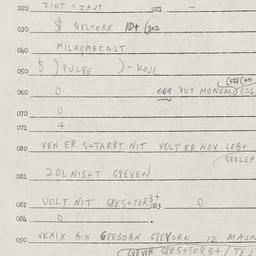 020 ZINT = ZAJT 021 —
030 $ GELTERE ID+ (302
040 MILXOMECAJT
050 $ ) PULSE ) - KOJL
060 0 069 VUT MENEM
070 0
071 +
080 VEN ER S+TARBT NIT VOLT ER NOX LEB+
GEELEP
081 ZOLNIS+T GREVEN
082 VOLT NIT GGES+TORB+ 083 0
084 0
090 VENIX BIN GREBORN GREVORN IZ MAJN
GREVEN GGES+TORB+ / TEJ